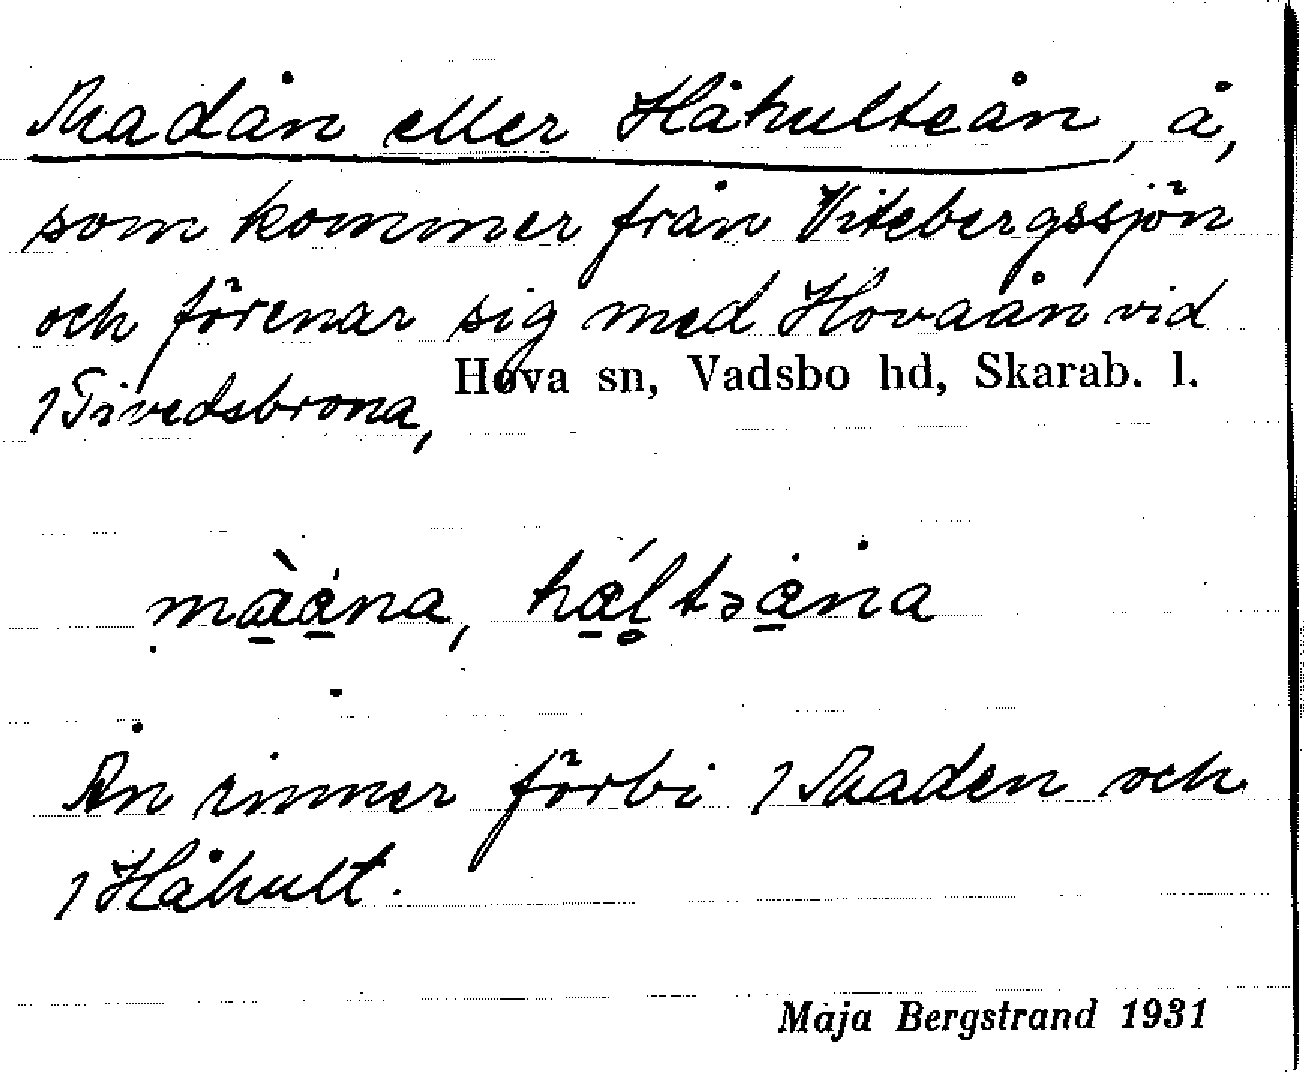 Madån eller Håhulteån, å,
som kommer från Vitebergssjön
och förenar sig med Hovaån vid
Hova sn, Vadsbo hd, Skarab. l.
/Tivedsbrona,
Ån rinner förbi /Maden och
/Håhult.
Maja Bergstrand 1931